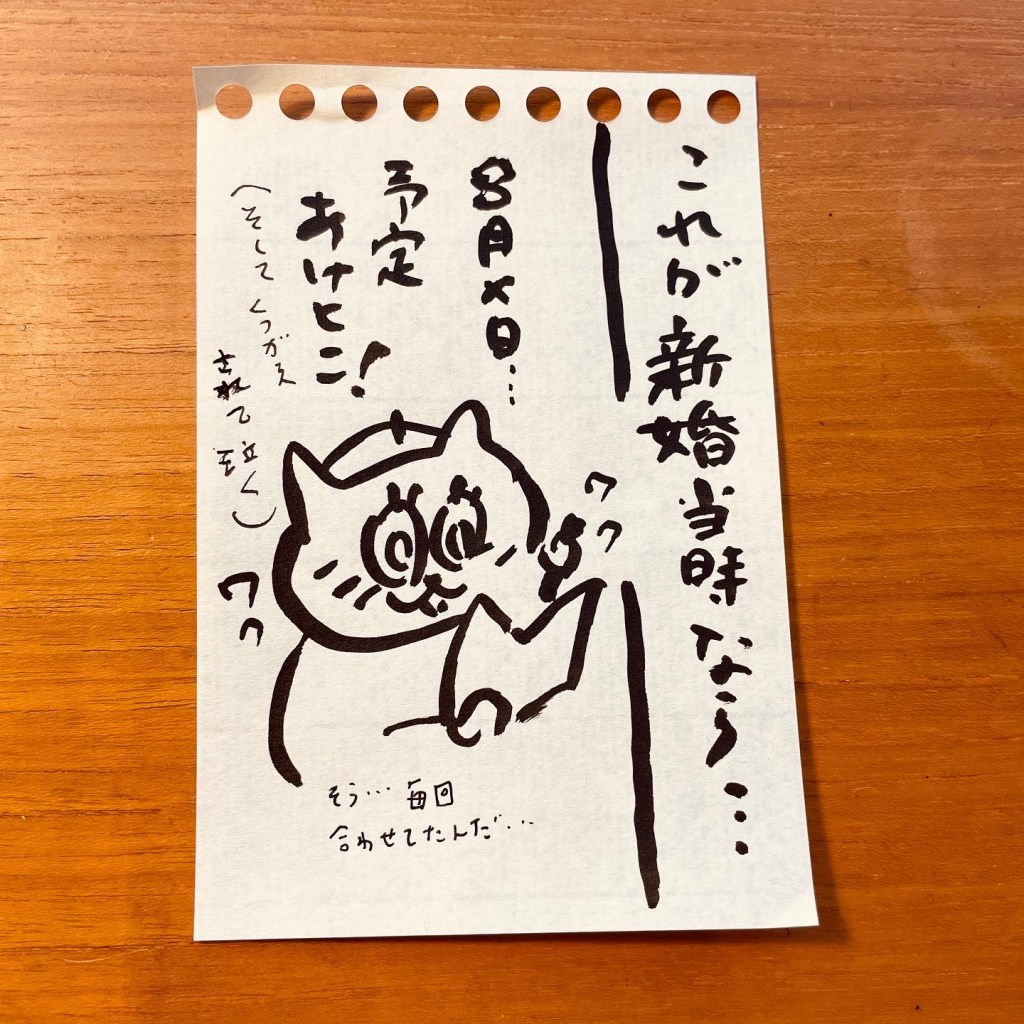 これが新婚当時なら…
8月×日…
予定
あけとこ！
（そしてくつがえ
されて泣く）
ワク
ワク
そう…毎回
合わせてたんだ…